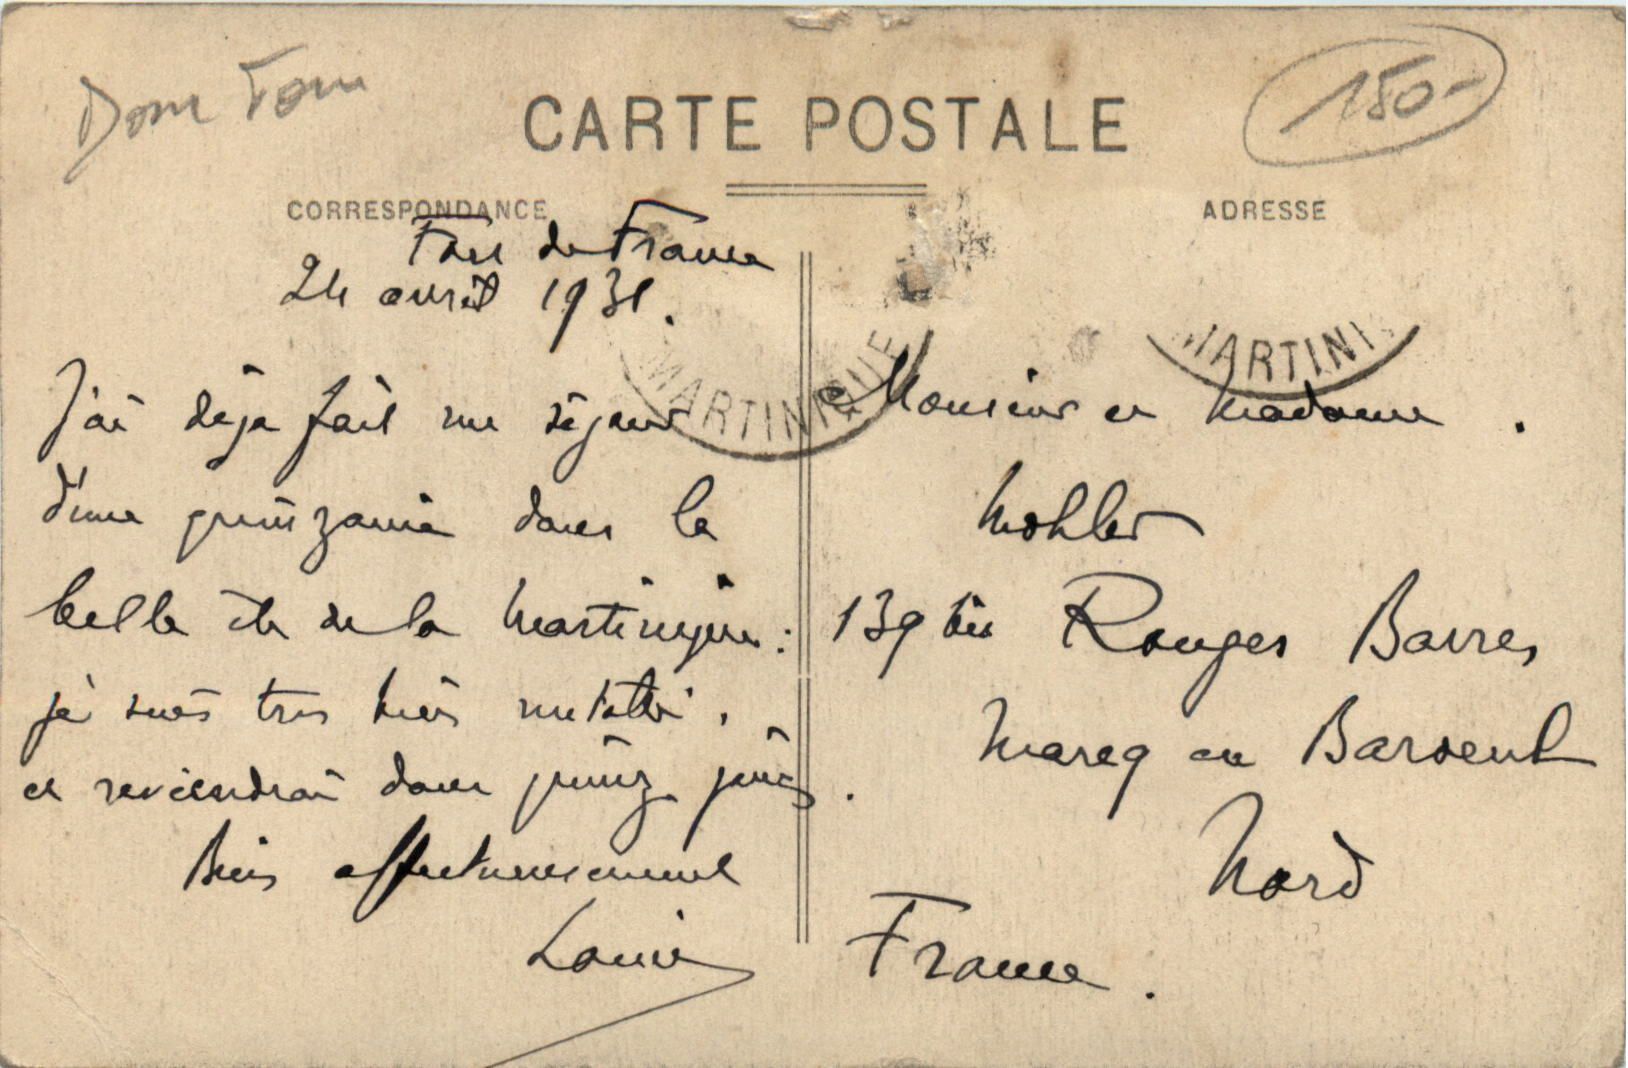 Dom Tom
150-
CARTE POSTALE
CORRESPONDANCE
ADRESSE
Fort de France
24 avril 1931.
MARTINIQUE
MARTINI
J'ai déja fait un séjour
d'une quinzaine dans la
belle île de la Martinique :
je suis tres bien
et reviendrai dans quinze jours.
Bien affectueusement
Louis
Monsieur et Madame.
Mohler
139 bis Rouges Barres
Marcq en Baroeul
Nord
France.